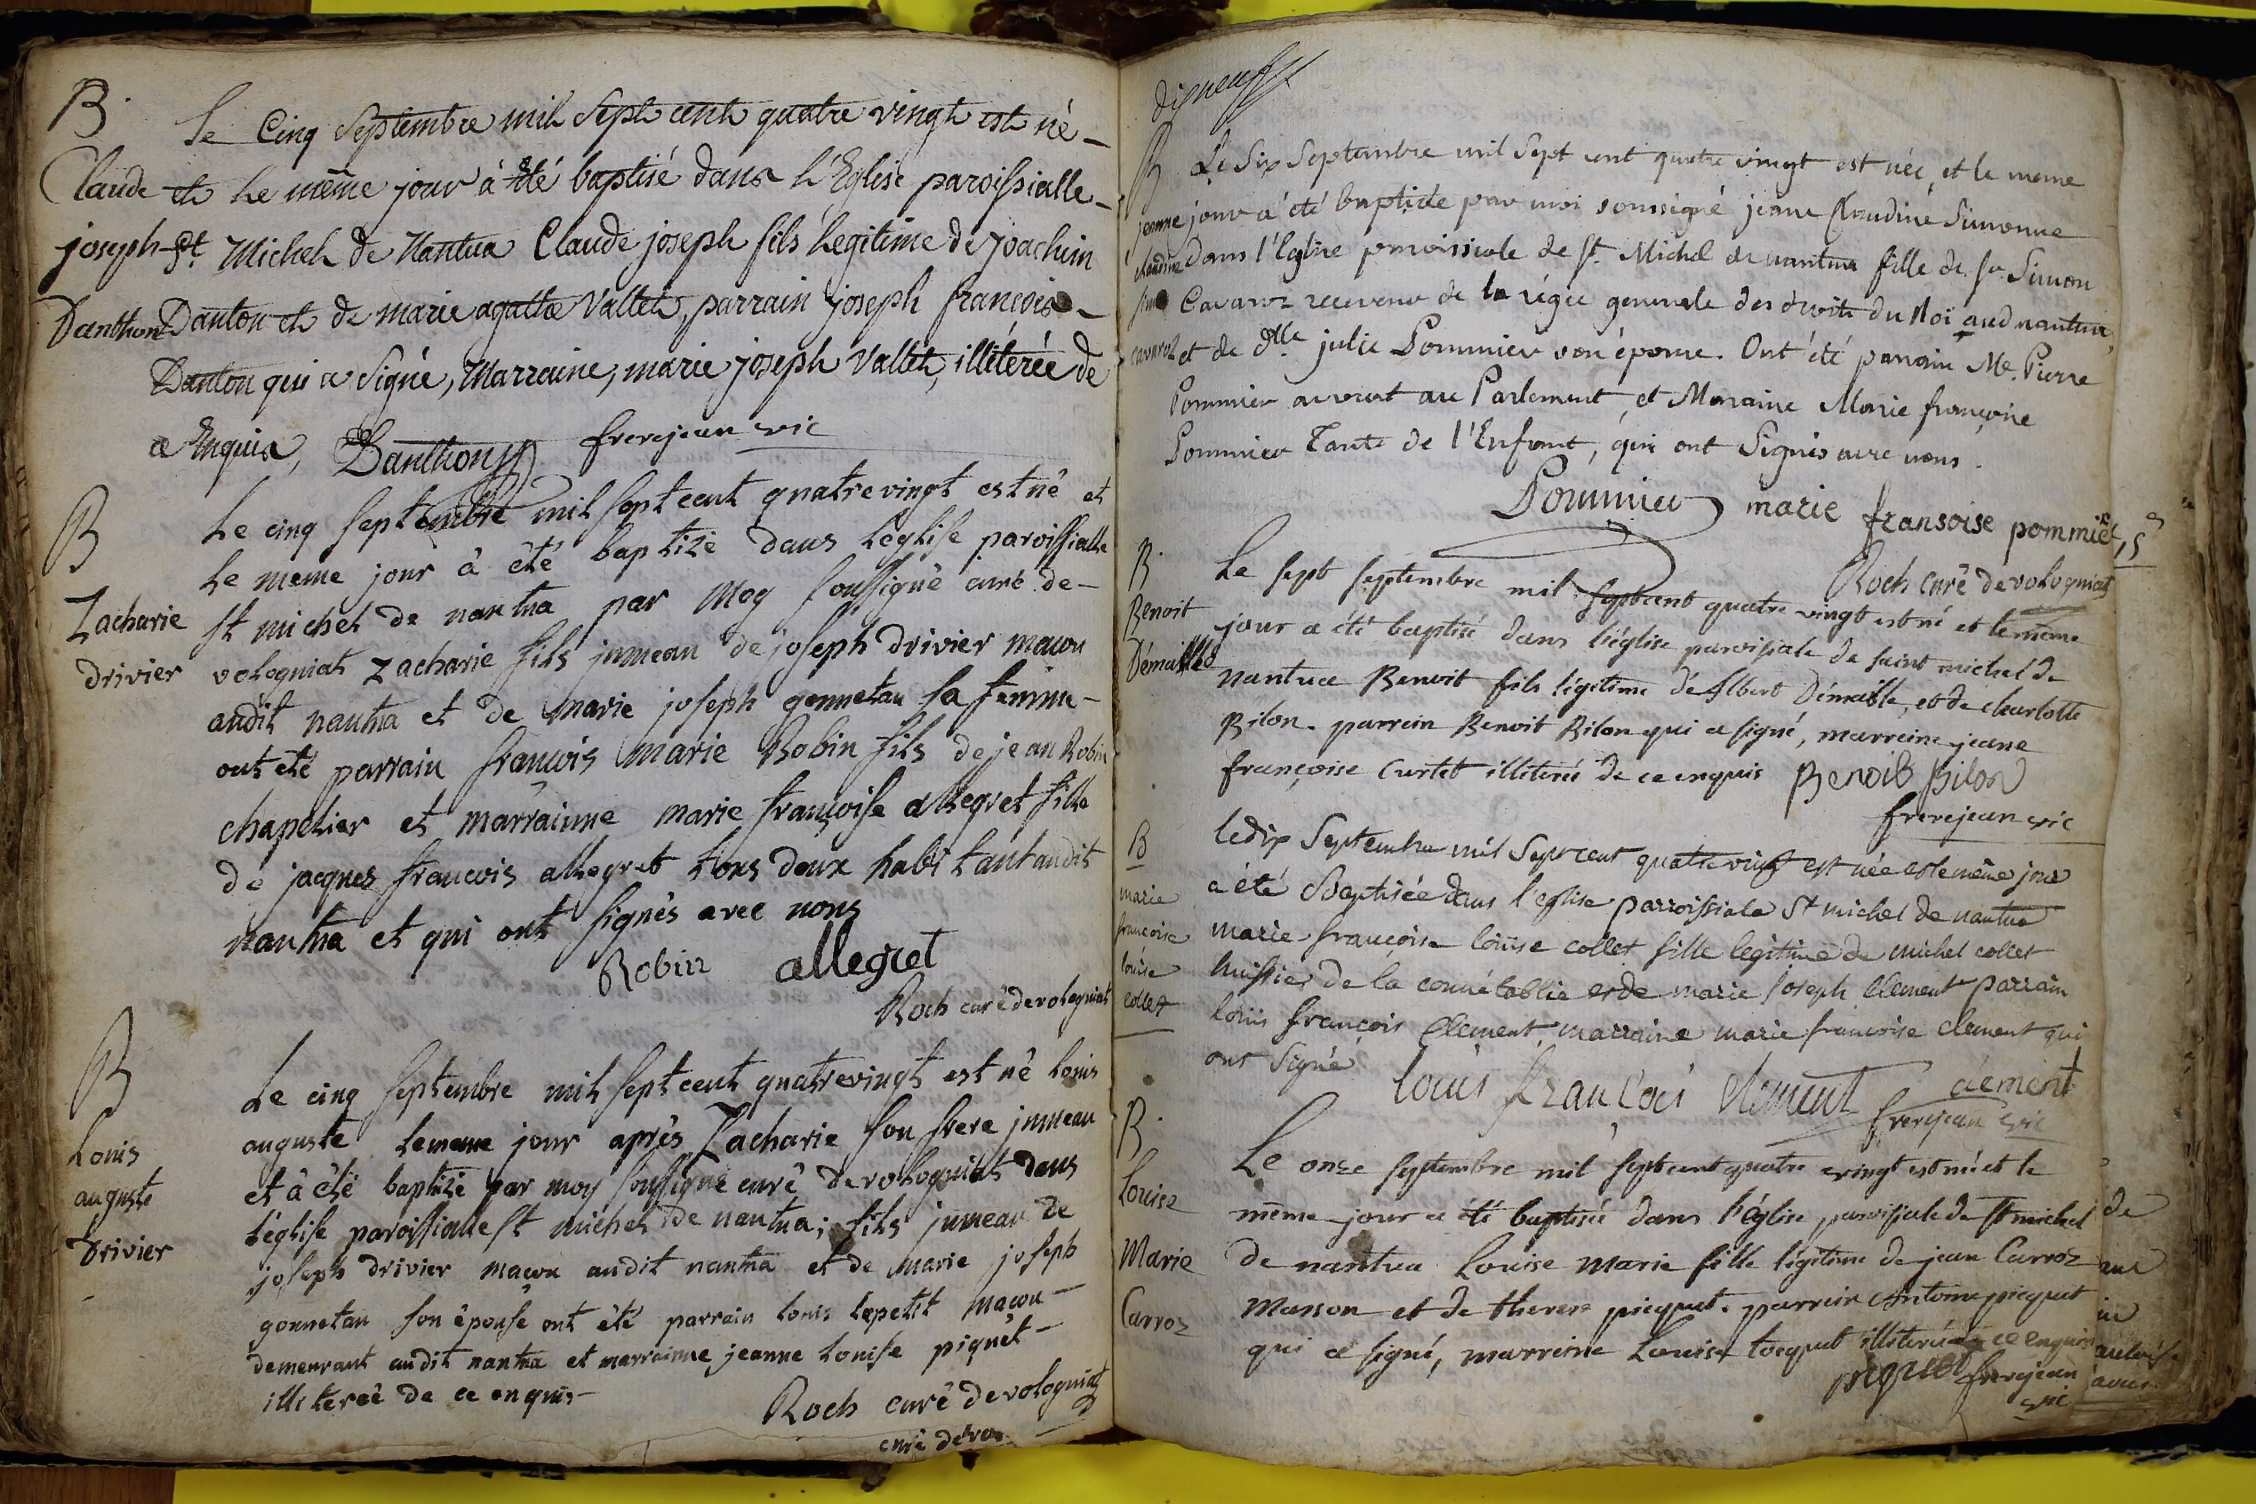 B.
Claude
joseph
Danthon
Le Cinq Septembre mil Sept cent quatre vingt est né
et le même jour à été baptisé dans l'Eglise paroissialle
St. Michel de Nantua Claude joseph fils légitime de joachim
Danton et de marie agathe Vallet, parrain joseph françois
Danton qui a Signé, Marraine, marie joseph Vallet, illitérée de
ce Enquis, Danthon frerejean vic
B
Zacharie
drivier
Le cinq septembre mil sept cent quatrevingt est nê et
le meme jour â êtê baptizê dans léglise paroissialle
st michel de nantua par moy soussignê curé de
vologniat zacharie fils jumeau de joseph drivier maçon
audit nantua et de marie joseph gonnetan sa femme
ont êtê parrain francois marie Robin fils de jean Robin
chapelier et marrainne marie françoise allegret fille
de jacques francois allegret tous deux habitant audit
nantua et qui ont signês avec nous
Robin allegret
Roch curê de vologniat
B
Louis
auguste
drivier
Le cinq septembre mil sept cent quatrevingt est nê louis
auguste le meme jour aprês Zacharie son frere jumeau
et â êtê baptizê par moy soussignê curê de vologniat dans
léglise paroissialle st michel de nantua; fils jumeau de
joseph drivier maçon audit nantua et de marie joseph
gonnetan son êpouse ont êtê parrain louis lepetit maçon
demeurant audit nantua et marrainne jeanne louise piquêt
illiterêe de ce enquis
Roch curê de volognat
curê de vo
B
jeanne
claudine
cavaroz
Le Six Septembre mil Sept cent quatre vingt est née, et le meme
jour a été baptisée par moi soussigné jeane Claudine Simonne
dans l'Eglise paroissiale de st. Michel de nantua fille de sr. Simon
Cavaroz receveur de la régie generale des droits du Roi aud nantua,
et de dlle julie Pommier son épouse. Ont été parrain Me. Pierre
Pommier avocat au Parlement, et Maraine Marie françoise
Pommier Tante de l'Enfant, qui ont Signés avec nous.
Pommier marie fransoise pommier
Roch curê de volognat
B.
Benoit
Démaille
Le sept septembre mil sept cent quatre vingt est né et le même
jour a été baptisé dans l'église paroissiale de saint michel de
nantua Benoit fils légitime d'Albert Démaille, et de charlotte
Bilon. parrain Benoit Bilon qui a signé, marreine jeane
françoise Curtet illiterée de ce enquis Benoit Bilon
frerejean vic
B
marie
francoise
louise
collet
le dix Septembre mil Sept cent quatre vingt est née et le même jour
a été Baptisée dans l'eglise parroissiale St michel de nantua
marie françoise louise collet fille légitime de michel collet
huissier de la connétablie et de marie joseph Clement parrain
louis françois Clement, marraine marie francoise clement qui
ont signé
louis françois clement clement
frerejean vic
B.
Louise
Marie
Carroz
Le onze septembre mil sept cent quatre vingt est né et le
même jour a été baptisée dans l'église paroissiale de st michel
de nantua Louise Marie fille légitime de jean Carroz
Masson et de therese picquet. parrein Antoine picquet
qui a signé, marreine Louise tocquet illiterée de ce enquis
piquet frerejean
vic